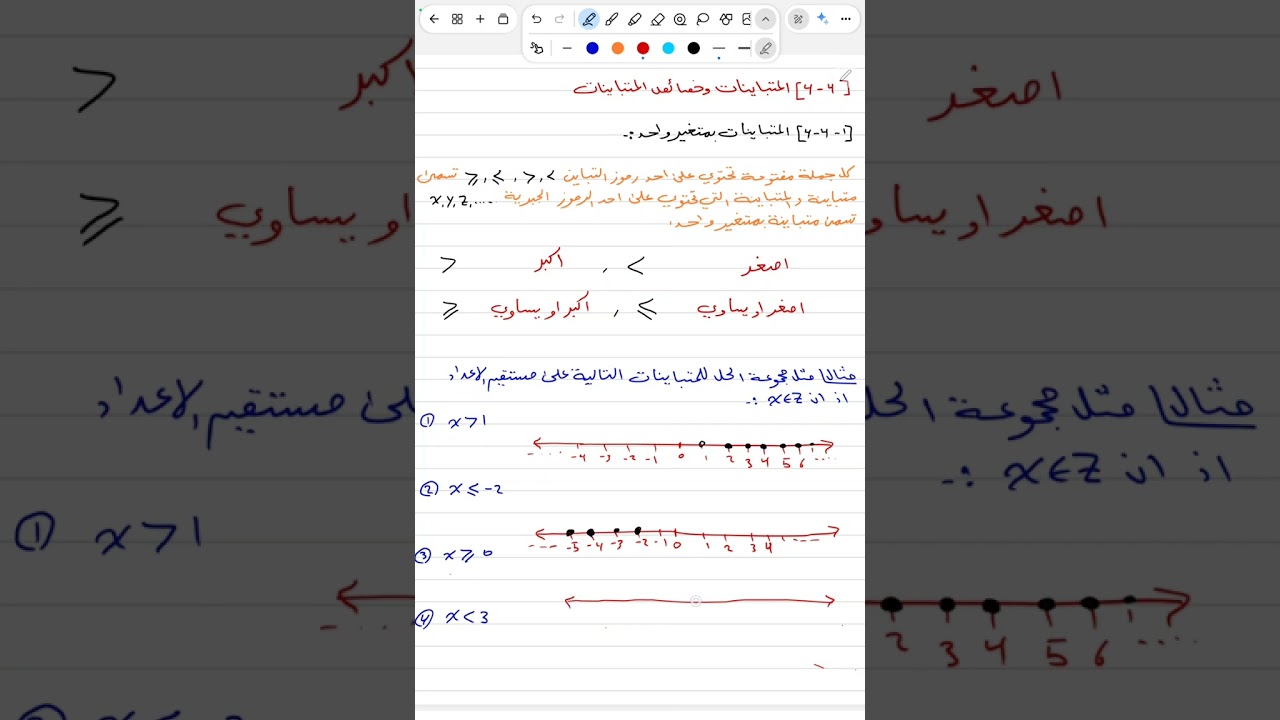 [4-4] المتباينات وخصائص المتباينات
[4-4-1] المتباينات بمتغير واحد :-
كل جملة مفتوحة تحتوي على احد رموز التباين < , > , ≤ , ≥ تسمى
متباينة والمتباينة التي تحتوي على احد الرموز الجبرية x,y,z,....
تسمى متباينة بمتغير واحد.
اصغر < , اكبر >
اصغر او يساوي ≤ , اكبر او يساوي ≥
مثال١ مثل مجموعة الحل للمتباينات التالية على مستقيم الاعداد
اذ ان x∈Z :-
① x>1
..... -4 -3 -2 -1 0 1 2 3 4 5 6 ....
② x≤-2
--- -5 -4 -3 -2 -1 0 1 2 3 4 ---
③ x≥0
④ x<3